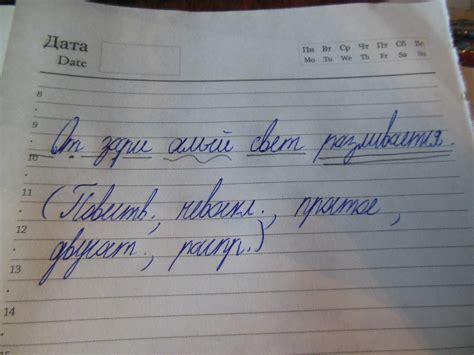 Дата
Date
Пн Вт Ср Чт Пт Сб Вс
Mo Tu We Th Fr Sa Su
8
9
От зари алый свет разливается.
10
11
(Повеств., невоскл., простое,
12
двусост., распр.)
13
15